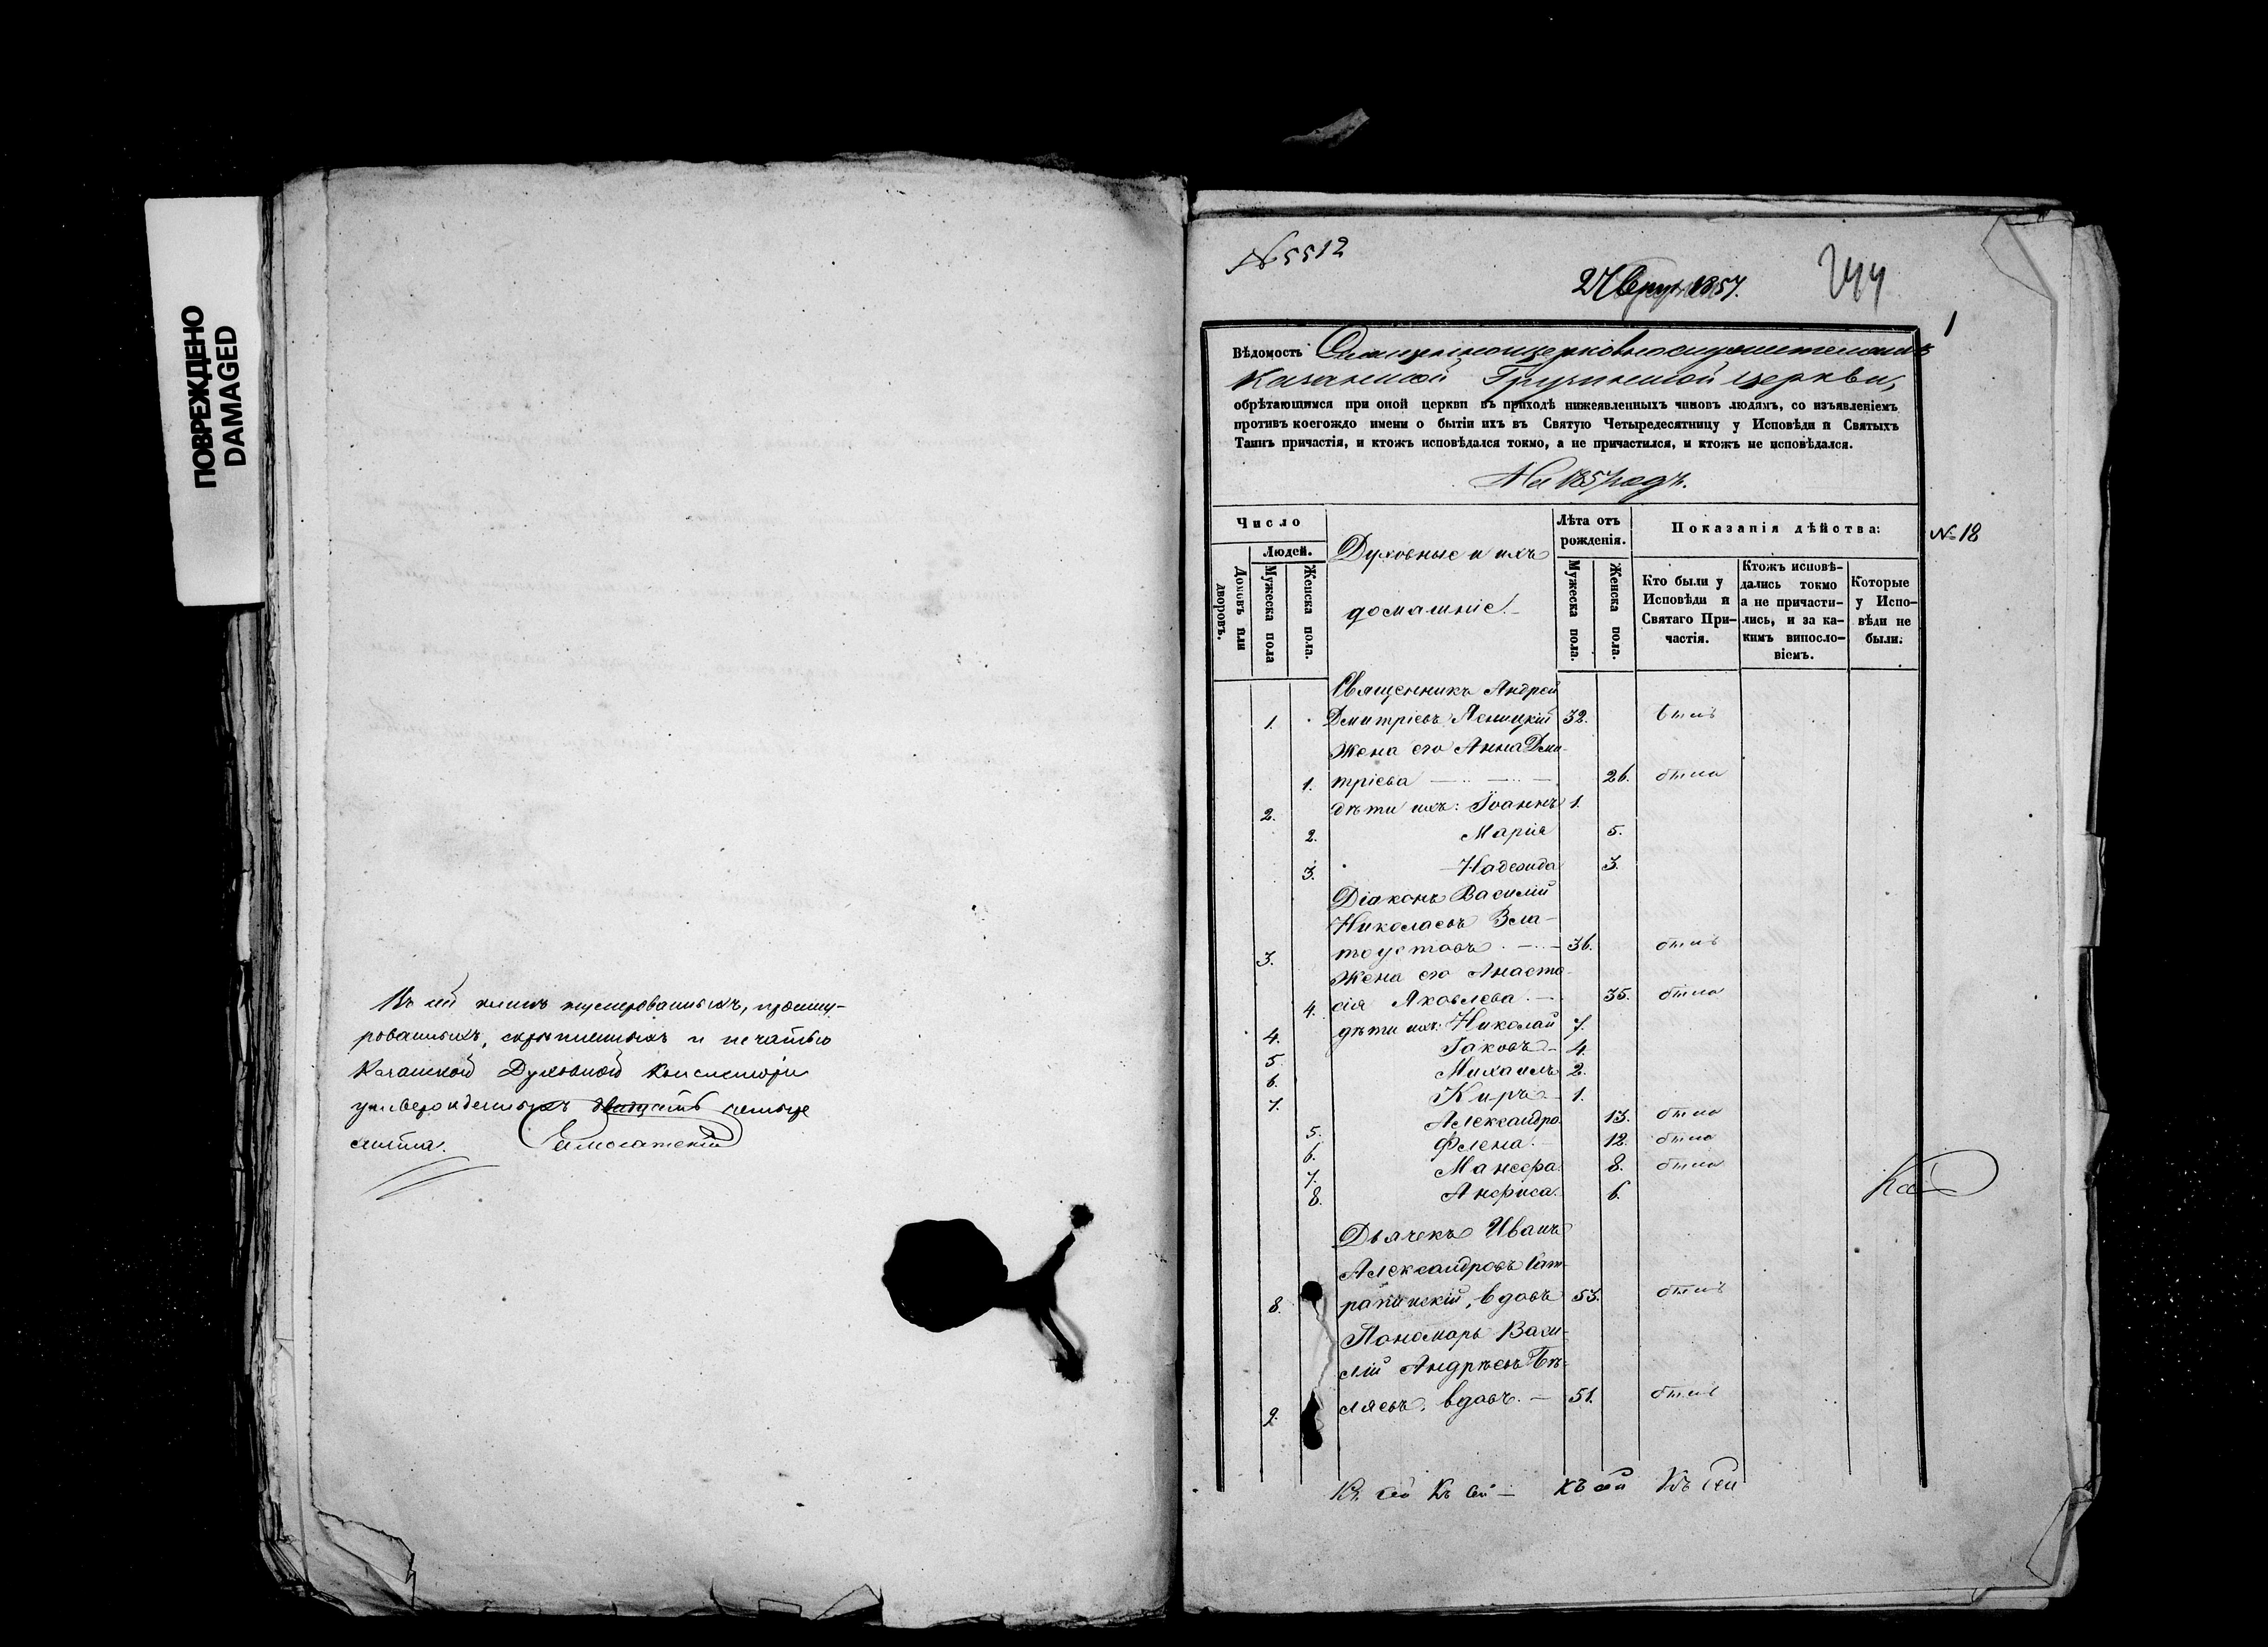 ПОВРЕЖДЕНО
DAMAGED
Въ сей нумерованныхъ, прошну-
рованныхъ, скрѣпленныхъ и печатью
Казанской Духовной Консисторіи
утвержденныхъ двадцать четыре
листа.
№ 5512
1857.
244
1
Вѣдомость
Казанской Грузинской церкви,
обрѣтающимся при оной церкви въ приходѣ нижеявленныхъ чиновъ людямъ, со изъявленіемъ
противъ коегождо имени о бытіи ихъ въ Святую Четыредесятницу у Исповѣди и Святыхъ
Таинъ причастія, и ктожъ исповѣдался токмо, а не причастился, и ктожъ не исповѣдался.
На 1857 годъ.
Число
Людей.
Домовъ или дворовъ.
Мужеска пола
Женска пола.
Духовные и ихъ
домашніе.
Лѣта отъ рожденія.
Мужеска пола.
Женска пола.
Показанія дѣйства:
Кто были у Исповѣди и Святаго Причастія.
Ктожъ исповѣ-
дались токмо
а не причасти-
лись, и за ка-
кимъ винosло-
віемъ.
Которые
у Испо-
вѣди не
были.
№ 18
Священникъ Андрей
1. Дмитріевъ Ясницкій 32. былъ
Жена его Анна Дми-
1. тріева 26. была
2. дѣти ихъ: Іоаннъ 1.
2. Марія 5.
3. Надежда 3.
Діаконъ Василій
Николаевъ Зла-
3. тоустовъ 36. былъ
Жена его Анаста-
4. сія Яковлева 35. была
4. дѣти ихъ: Николай 7.
5. Іаковъ 4.
6. Михаилъ 2.
7. Киръ 1.
5. Александра 13. была
6. Ѳлена 12. была
7. Манефа 8. была
8. Анфиса. 6.
Дьячекъ Иванъ
Александровъ Сат-
8. рапинскій, вдовъ 53. былъ
Пономарь Васи-
лій Андреевъ Бѣ-
9. ляевъ, вдовъ. 51. былъ
Ка
Къ сей Къ сей Къ сей Къ сей